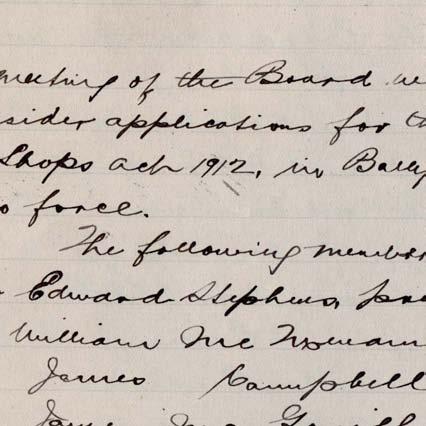 meeting of the Board
sider applications for
Shops Act 1912, in Bally
o force.
The following members
Edward Stephens,
William Mc
James Campbell
James Mc